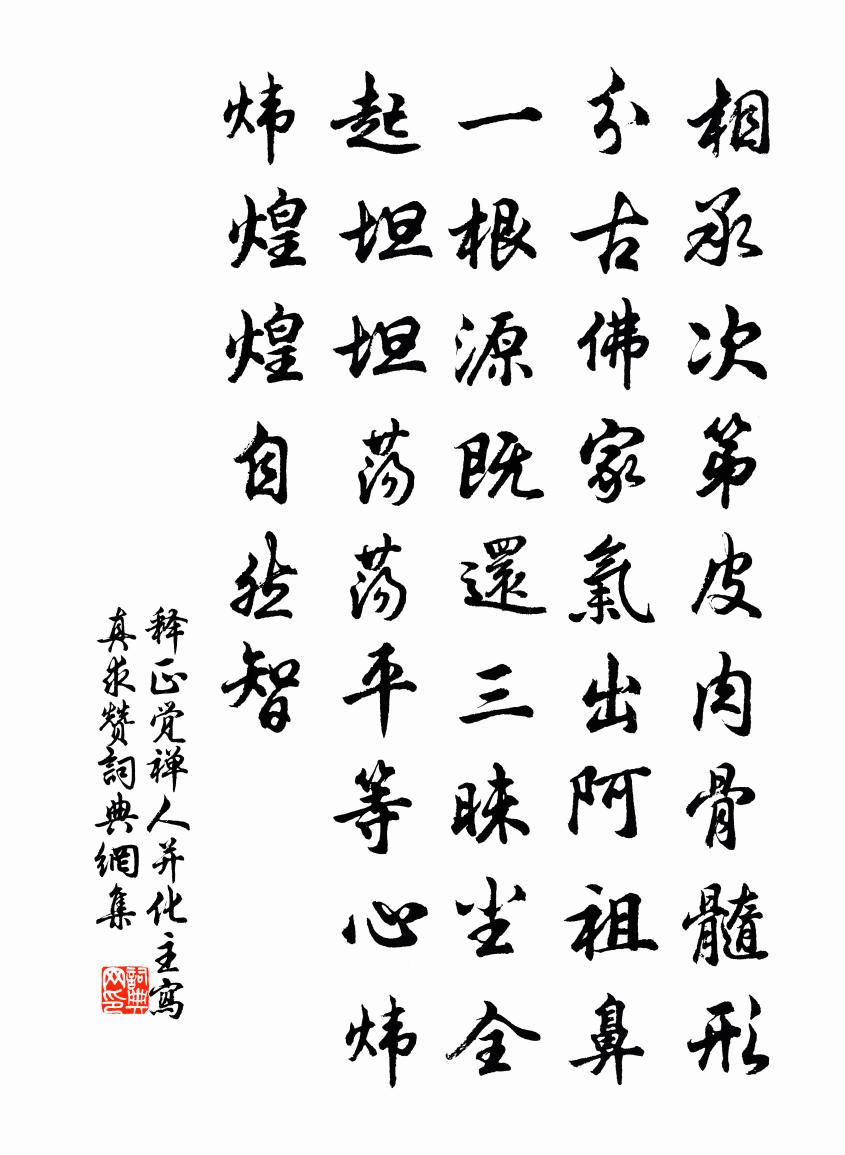 相承次第皮肉骨髓形
分古佛家氣出阿祖鼻
一根源既還三昧尘全
起坦坦荡荡平等心炜
炜煌煌自然智
释正觉禅人并化主寫
真求赞詞典網集
詞典
网印